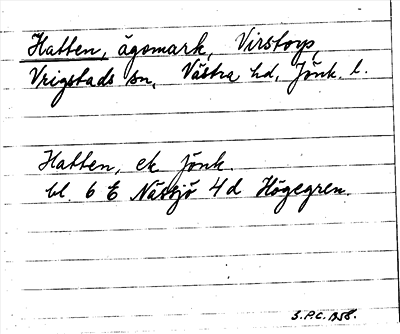 Hatten, ägomark, Virstorp,
Vrigstads sn, Västra hd, Jönk. l.
Hatten, ek Jönk.
bl. 6 E Nässjö 4d Högegren.
S.P.C. 1958.